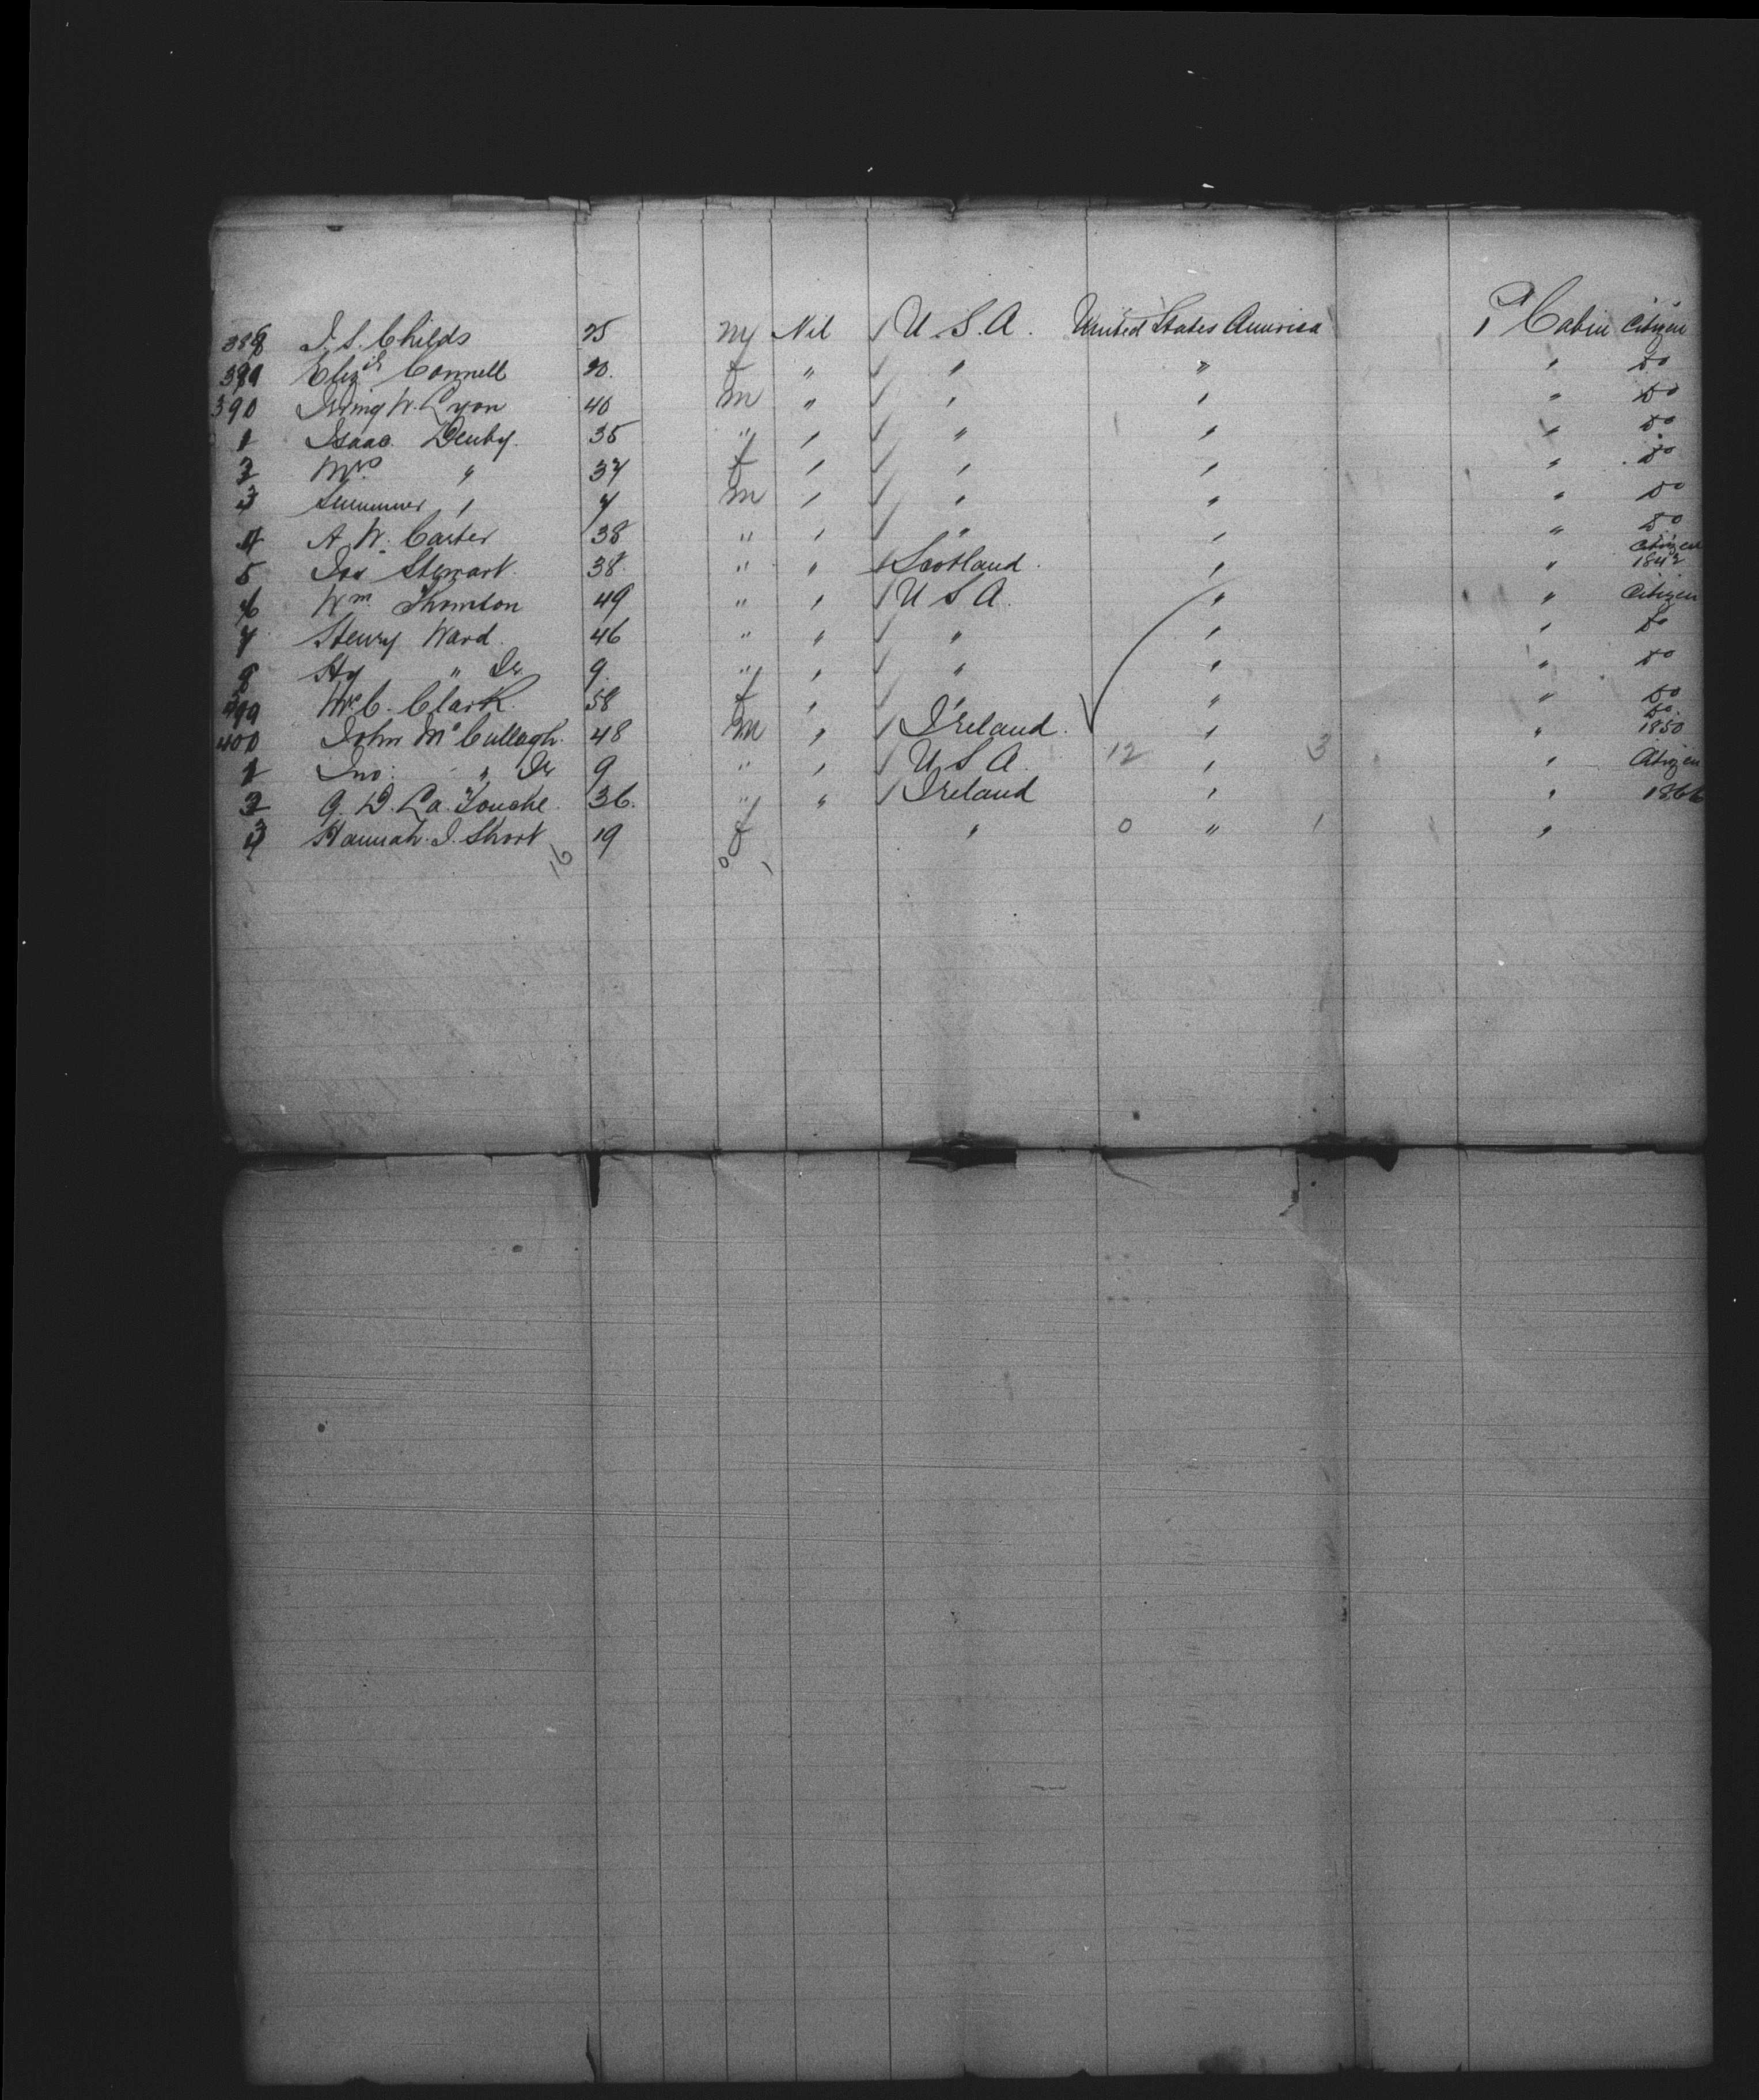 388 J. S. Childs 25 m Nil / U. S. A. United States America 1st Cabin Citizen
389 Elizth Connell 30. f " / " " " Do
390 Irving W. Lyon 40 m " / " " " Do
1 Isaac Denby. 35 " " / " " " Do
2 Mrs " 37 f " / " " " Do
3 " 7 m " / " " " Do
4 A. W. Carter 38 " " / " " " Do
5 Jas Stewart. 38. " " / Scotland. " " Citizen 1842
6 Wm. Thomson 49 " " / U S A. " " Citizen
7 Henry Ward. 46 " " / " " " Do
8 Hy " Jr. 9. " " / " " " Do
399 Mrs C. Clark. 58 f " / " " " Do
400 John McCullagh. 48 m " / Ireland. " " Do. 1850
1 Jno. " Jr 9 " " / U S A. 12 " 3 " Citizen
2 G. D. La Touche. 36. " " / Ireland " " 1866
3 Hannah. J. Short 19 f " 0 " 1 "
16 0 1